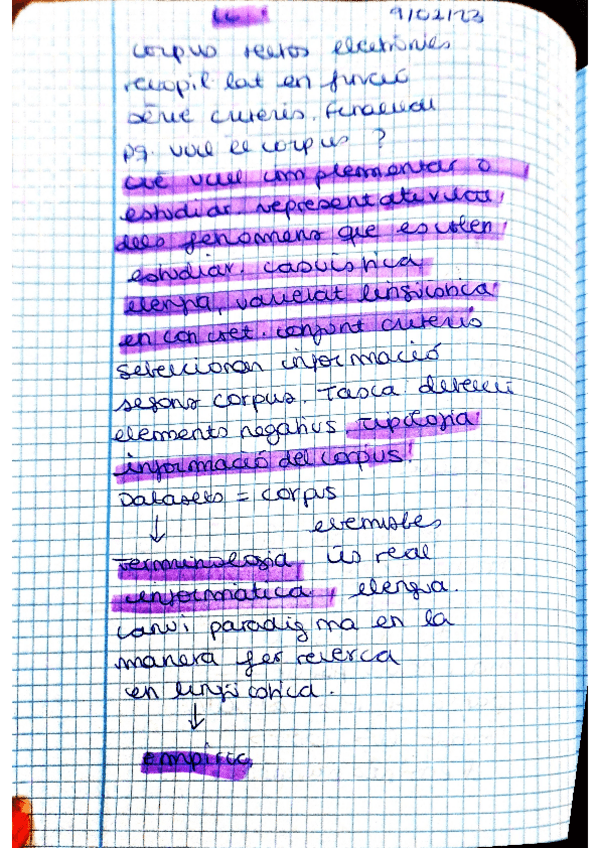 9/02/23
corpus textos electrònics
recopil·lat en funció
sèrie criteris.
pq. vull el corpus ?
què vull implementar o
estudiar. representativitat
dels fenomens que es volen
estudiar. casuística
llengua, varietat lingüística
en concret. conjunt criteris
seleccionar informació
segons corpus. Tasca detecció
elements negatius. Tipologia
informació del corpus.
Datasets = corpus
↓ exemples
Terminologia ús real
informàtica, llengua.
canvi paradigma en la
manera fer recerca
en lingüística.
↓
empíric